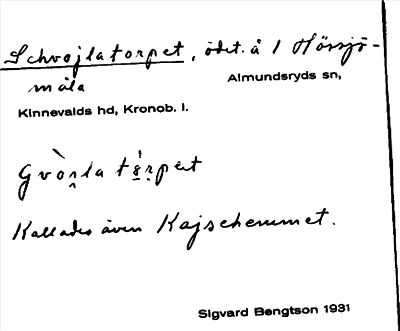 Schvojlatorpet, ödet. å 1 Hörsjö-
måla Almundsryds sn,
Kinnevalds hd, Kronob. l.
Kallades även Kajschemmet.
Sigvard Bengtson 1931